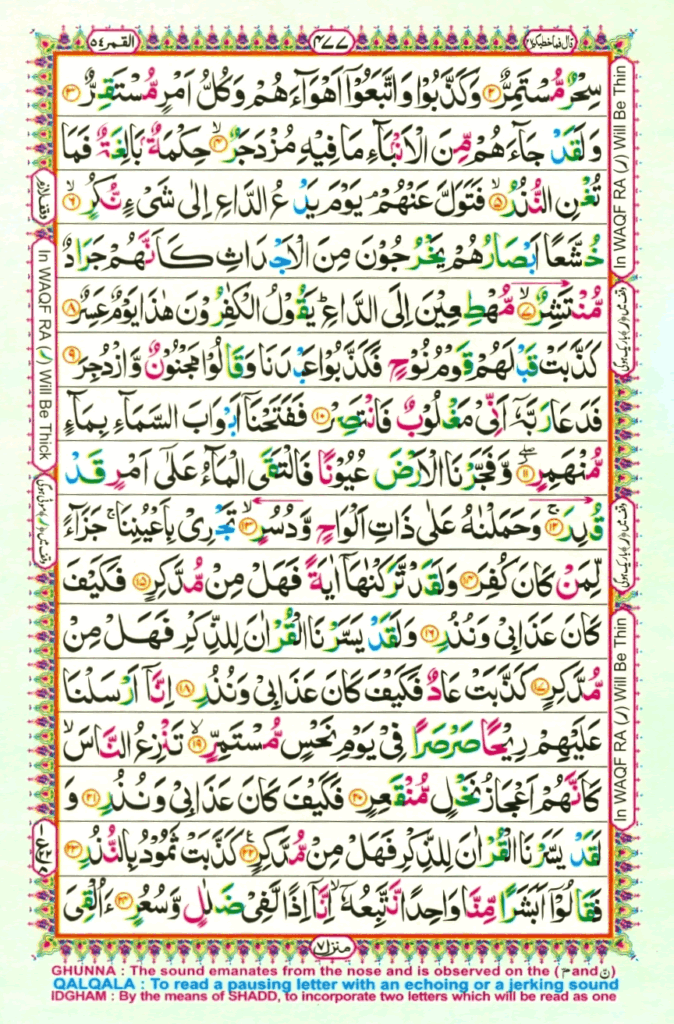 القمر ٥٤
٤٧٧
قال فما خطبكم ٢٧
سِحْرٌ مُّسْتَمِرٌّ ۝٢ وَكَذَّبُوْا وَاتَّبَعُوْٓا اَهْوَآءَهُمْ وَكُلُّ اَمْرٍ مُّسْتَقِرٌّ ۝٣
وَلَقَدْ جَآءَهُمْ مِّنَ الْاَنْۢبَآءِ مَا فِيْهِ مُزْدَجَرٌ ۙ۝٤ حِكْمَةٌۢ بَالِغَةٌ فَمَا
تُغْنِ النُّذُرُ ۙ۝٥ فَتَوَلَّ عَنْهُمْ ۘ يَوْمَ يَدْعُ الدَّاعِ اِلٰى شَىْءٍ نُّكُرٍ ۙ۝٦
خُشَّعًا اَبْصَارُهُمْ يَخْرُجُوْنَ مِنَ الْاَجْدَاثِ كَاَنَّهُمْ جَرَادٌ
مُّنْتَشِرٌ ۙ۝٧ مُّهْطِعِيْنَ اِلَى الدَّاعِ ؕ يَقُوْلُ الْكٰفِرُوْنَ هٰذَا يَوْمٌ عَسِرٌ ۝٨
كَذَّبَتْ قَبْلَهُمْ قَوْمُ نُوْحٍ فَكَذَّبُوْا عَبْدَنَا وَقَالُوْا مَجْنُوْنٌ وَّازْدُجِرَ ۝٩
فَدَعَا رَبَّهٗٓ اَنِّىْ مَغْلُوْبٌ فَانْتَصِرْ ۝١٠ فَفَتَحْنَآ اَبْوَابَ السَّمَآءِ بِمَآءٍ
مُّنْهَمِرٍ ۝١١ وَّفَجَّرْنَا الْاَرْضَ عُيُوْنًا فَالْتَقَى الْمَآءُ عَلٰٓى اَمْرٍ قَدْ
قُدِرَ ۚ۝١٢ وَحَمَلْنٰهُ عَلٰى ذَاتِ اَلْوَاحٍ وَّدُسُرٍ ۙ۝١٣ تَجْرِىْ بِاَعْيُنِنَا ۚ جَزَآءً
لِّمَنْ كَانَ كُفِرَ ۝١٤ وَلَقَدْ تَّرَكْنٰهَآ اٰيَةً فَهَلْ مِنْ مُّدَّكِرٍ ۝١٥ فَكَيْفَ
كَانَ عَذَابِىْ وَنُذُرِ ۝١٦ وَلَقَدْ يَسَّرْنَا الْقُرْاٰنَ لِلذِّكْرِ فَهَلْ مِنْ
مُّدَّكِرٍ ۝١٧ كَذَّبَتْ عَادٌ فَكَيْفَ كَانَ عَذَابِىْ وَنُذُرِ ۝١٨ اِنَّآ اَرْسَلْنَا
عَلَيْهِمْ رِيْحًا صَرْصَرًا فِىْ يَوْمِ نَحْسٍ مُّسْتَمِرٍّ ۙ۝١٩ تَنْزِعُ النَّاسَ ۙ
كَاَنَّهُمْ اَعْجَازُ نَخْلٍ مُّنْقَعِرٍ ۝٢٠ فَكَيْفَ كَانَ عَذَابِىْ وَنُذُرِ ۝٢١ وَ
لَقَدْ يَسَّرْنَا الْقُرْاٰنَ لِلذِّكْرِ فَهَلْ مِنْ مُّدَّكِرٍ ۝٢٢ كَذَّبَتْ ثَمُوْدُ بِالنُّذُرِ ۝٢٣
فَقَالُوْٓا اَبَشَرًا مِّنَّا وَاحِدًا نَّتَّبِعُهٗٓ ۙ اِنَّآ اِذًا لَّفِىْ ضَلٰلٍ وَّسُعُرٍ ۝٢٤ ءَاُلْقِىَ
In WAQF RA (ر) Will Be Thin
وقف میں (ر) باریک ہوگی
وقف میں (ر) باریک ہوگی
In WAQF RA (ر) Will Be Thin
وقف لازم
In WAQF RA (ر) Will Be Thick
وقف میں (ر) موٹی ہوگی
منزل ٧
GHUNNA : The sound emanates from the nose and is observed on the (م and ن)
QALQALA : To read a pausing letter with an echoing or a jerking sound
IDGHAM : By the means of SHADD, to incorporate two letters which will be read as one